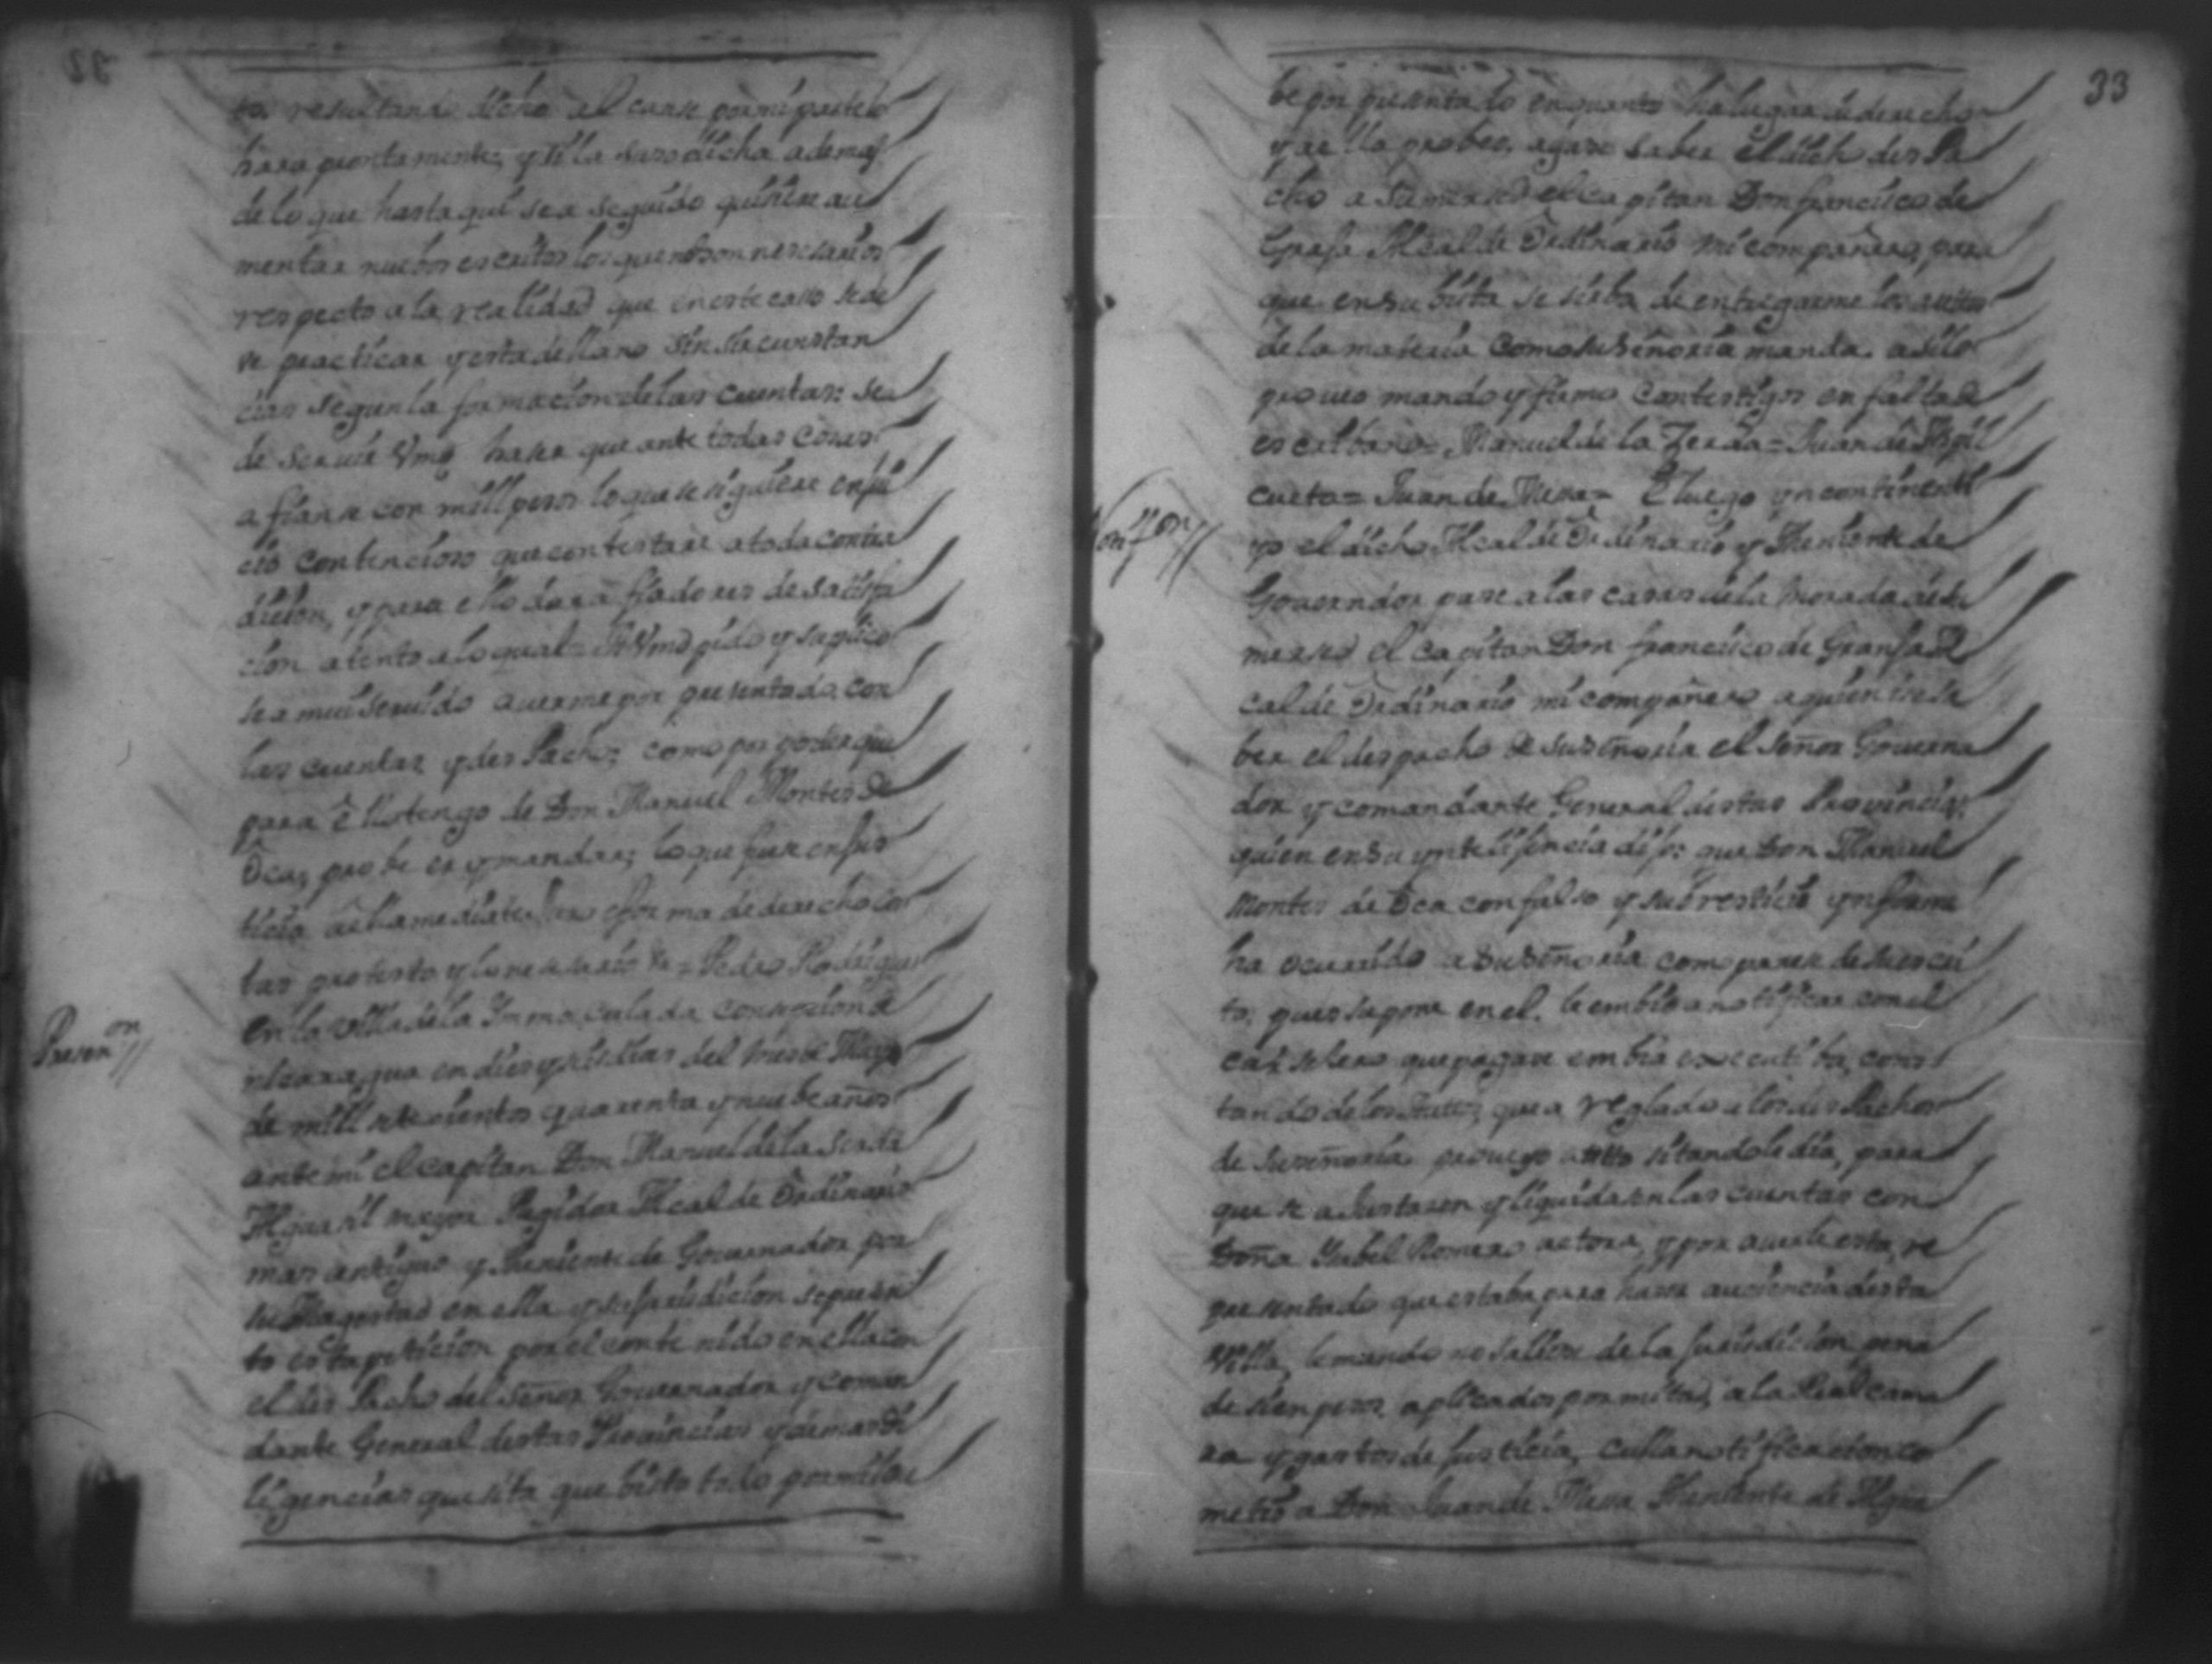 to, resultando dicho alcanse por mi parte lo
hara prontamente, y si la susodicha ademas
de lo que hasta qui sea seguido quisiere au
mentar nuebos escritos los que no son nescesarios
respecto a la realidad que en este caso se de
ve practicar y esta de llano sin sircunstan
cias segun la formacion de las cuentas: se a
de servir Vmd. haser que ante todas cosas
afianse con mill pesos lo que se siguiere en jui
cio contencioso que contestare a toda contra
dicion, y para ello dara fiadores de satisfa
cion atento a lo qual = A Vmd pido y suplico
sea mui seruido auerme por presentado, con
las cuentas, y des Pacho; como por poder que
para ello tengo de Don Manuel Montes de
Oca, probeer y mandar; lo que fuere en jus
ticia a ella mediate Juro en forma de derecho cos
tas protesto y lo nesesario &a = Pedro Rodrigues
Presenon//
en la Villa de la Immaculada consepcion de
nicaragua en dies y seis dias del mes de Mayo
de mill setecientos quarenta y nuebe años
ante mi el capitan Don Manuel de la Serda
Alguasil mayor Regidor Alcalde Ordinario
mas antiguo y Theniente de Gouernador por
su Magestad en ella y su jurisdicion se presen
to esta peticion por el contenido en ella con
el des Pacho del Señor Gouernador y coman
dante General destas Prouincias y demas di
ligencias que sita que bisto todo por mi lo re
33
be por presentado en quanto ha lugar de derecho
y a ella probeo, agase saber el dicho des Pa
cho a su merced el capitan Don francisco de
Granja Alcalde Ordinario mi compañero, para
que en su bista se sirba de entregarme los autos
de la materia como su Señoria manda. asi lo
proueo mando y firmo con testigos en falta de
escribano = Manuel de la Zerda = Juan de Aspil
cueta = Juan de Mesa =
Notifon//
E luego yncontinenti
yo el dicho Alcalde Ordinario y Theniente de
Gouernador pase a las casas de la morada de su
mersed el capitan Don francisco de Granja Al
calde Ordinario mi compañero a quien hise sa
ber el despacho de su Señoria el Señor Gouerna
dor y comandante General destas Prouincias;
quien en su yntelijencia dijo: que Don Manuel
Montes de Oca con falso y subresticio ynforme
ha ocurrido a su Señoria como parese de su escri
to; pues supone en el. le embio a notificar con el
carselero que pagase em bia executiba, cons
tando de los Autos, que a reglado a los des Pachos
de su señoria proueyo auto sitandole dia, para
que se ajustasen y liquidasen las cuentas con
Doña Ysabel Romero actora, y por auerle esta, re
presentado que estaba para haser aucencia desta
Villa, le mando no saliese de la jurisdicion pena
de sien pesos aplicados por mitad, a la Real cama
ra y gastos de justicia, cuia notificacion co
metio a Don Juan de Mesa Theniente de Algua